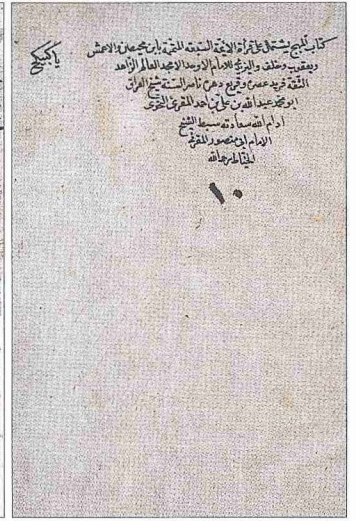 كتاب المبهج يشتمل على قرأة الائمة السبعة المتممة بابن محيصن والاعمش
ويعقوب وخلف واليزيدي للامام الاوحد الامجد العالم الزاهد
الثقة فريد عصره وقريع دهره ناصر السنة شيخ العراق
ابو محمد عبدالله بن علي بن احمد المقرئ النحوي
ادام الله سعادته سبط الشيخ
الامام ابي منصور المقرئ
الخياط رحمه الله
يا كبيكج
١٠